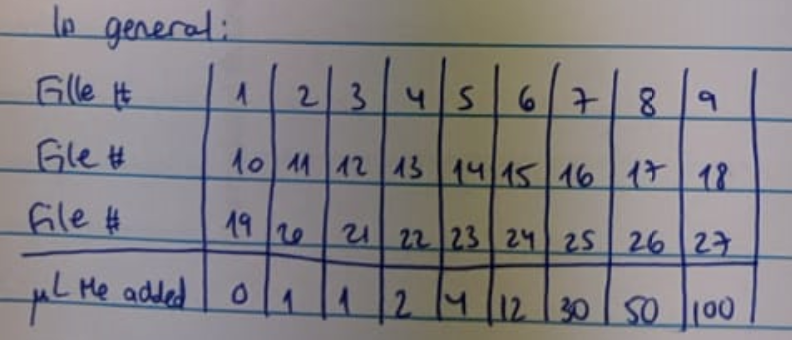 In general:
File # | 1 | 2 | 3 | 4 | 5 | 6 | 7 | 8 | 9
File # | 10 | 11 | 12 | 13 | 14 | 15 | 16 | 17 | 18
File # | 19 | 20 | 21 | 22 | 23 | 24 | 25 | 26 | 27
µL He added | 0 | 1 | 1 | 2 | 4 | 12 | 30 | 50 | 100